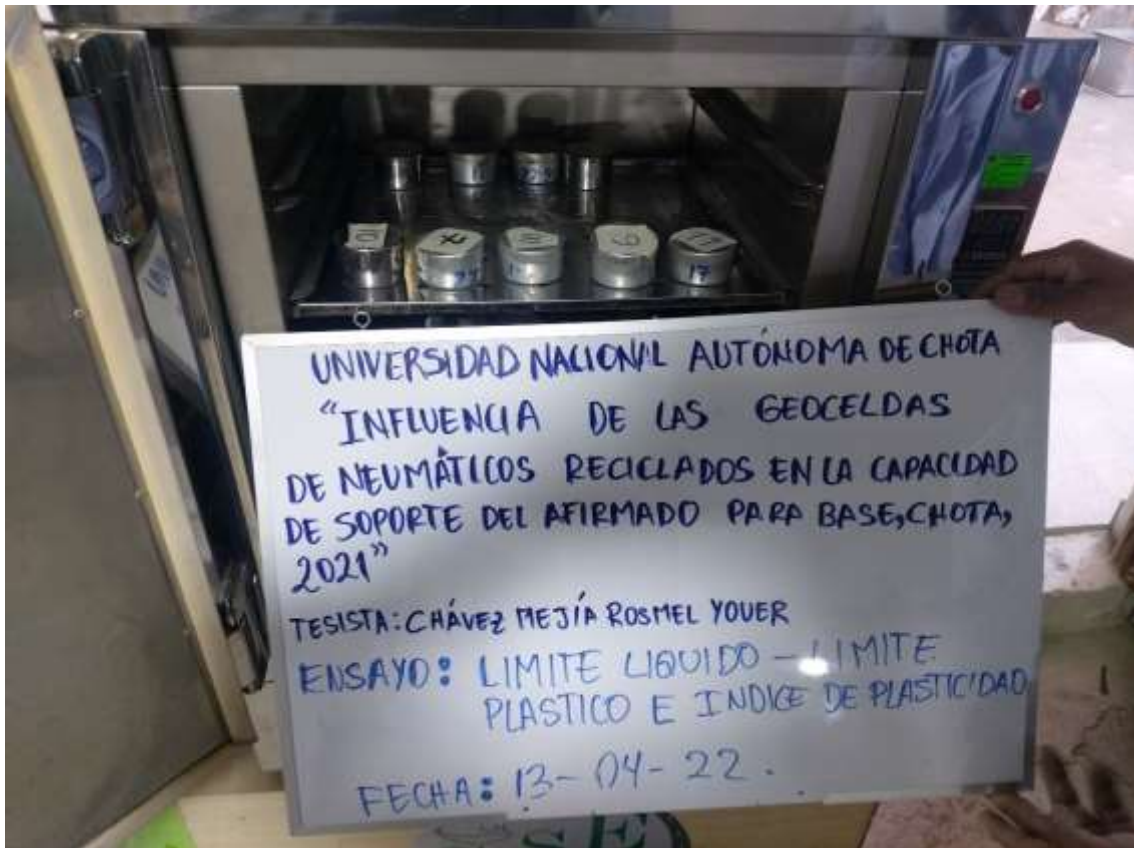 17
UNIVERSIDAD NACIONAL AUTÓNOMA DE CHOTA
"INFLUENCIA DE LAS GEOCELDAS
DE NEUMÁTICOS RECICLADOS EN LA CAPACIDAD
DE SOPORTE DEL AFIRMADO PARA BASE, CHOTA,
2021"
TESISTA: CHÁVEZ MEJÍA ROSMEL YOUER
ENSAYO: LIMITE LIQUIDO - LIMITE
PLASTICO E INDICE DE PLASTICIDAD
FECHA: 13-04-22.